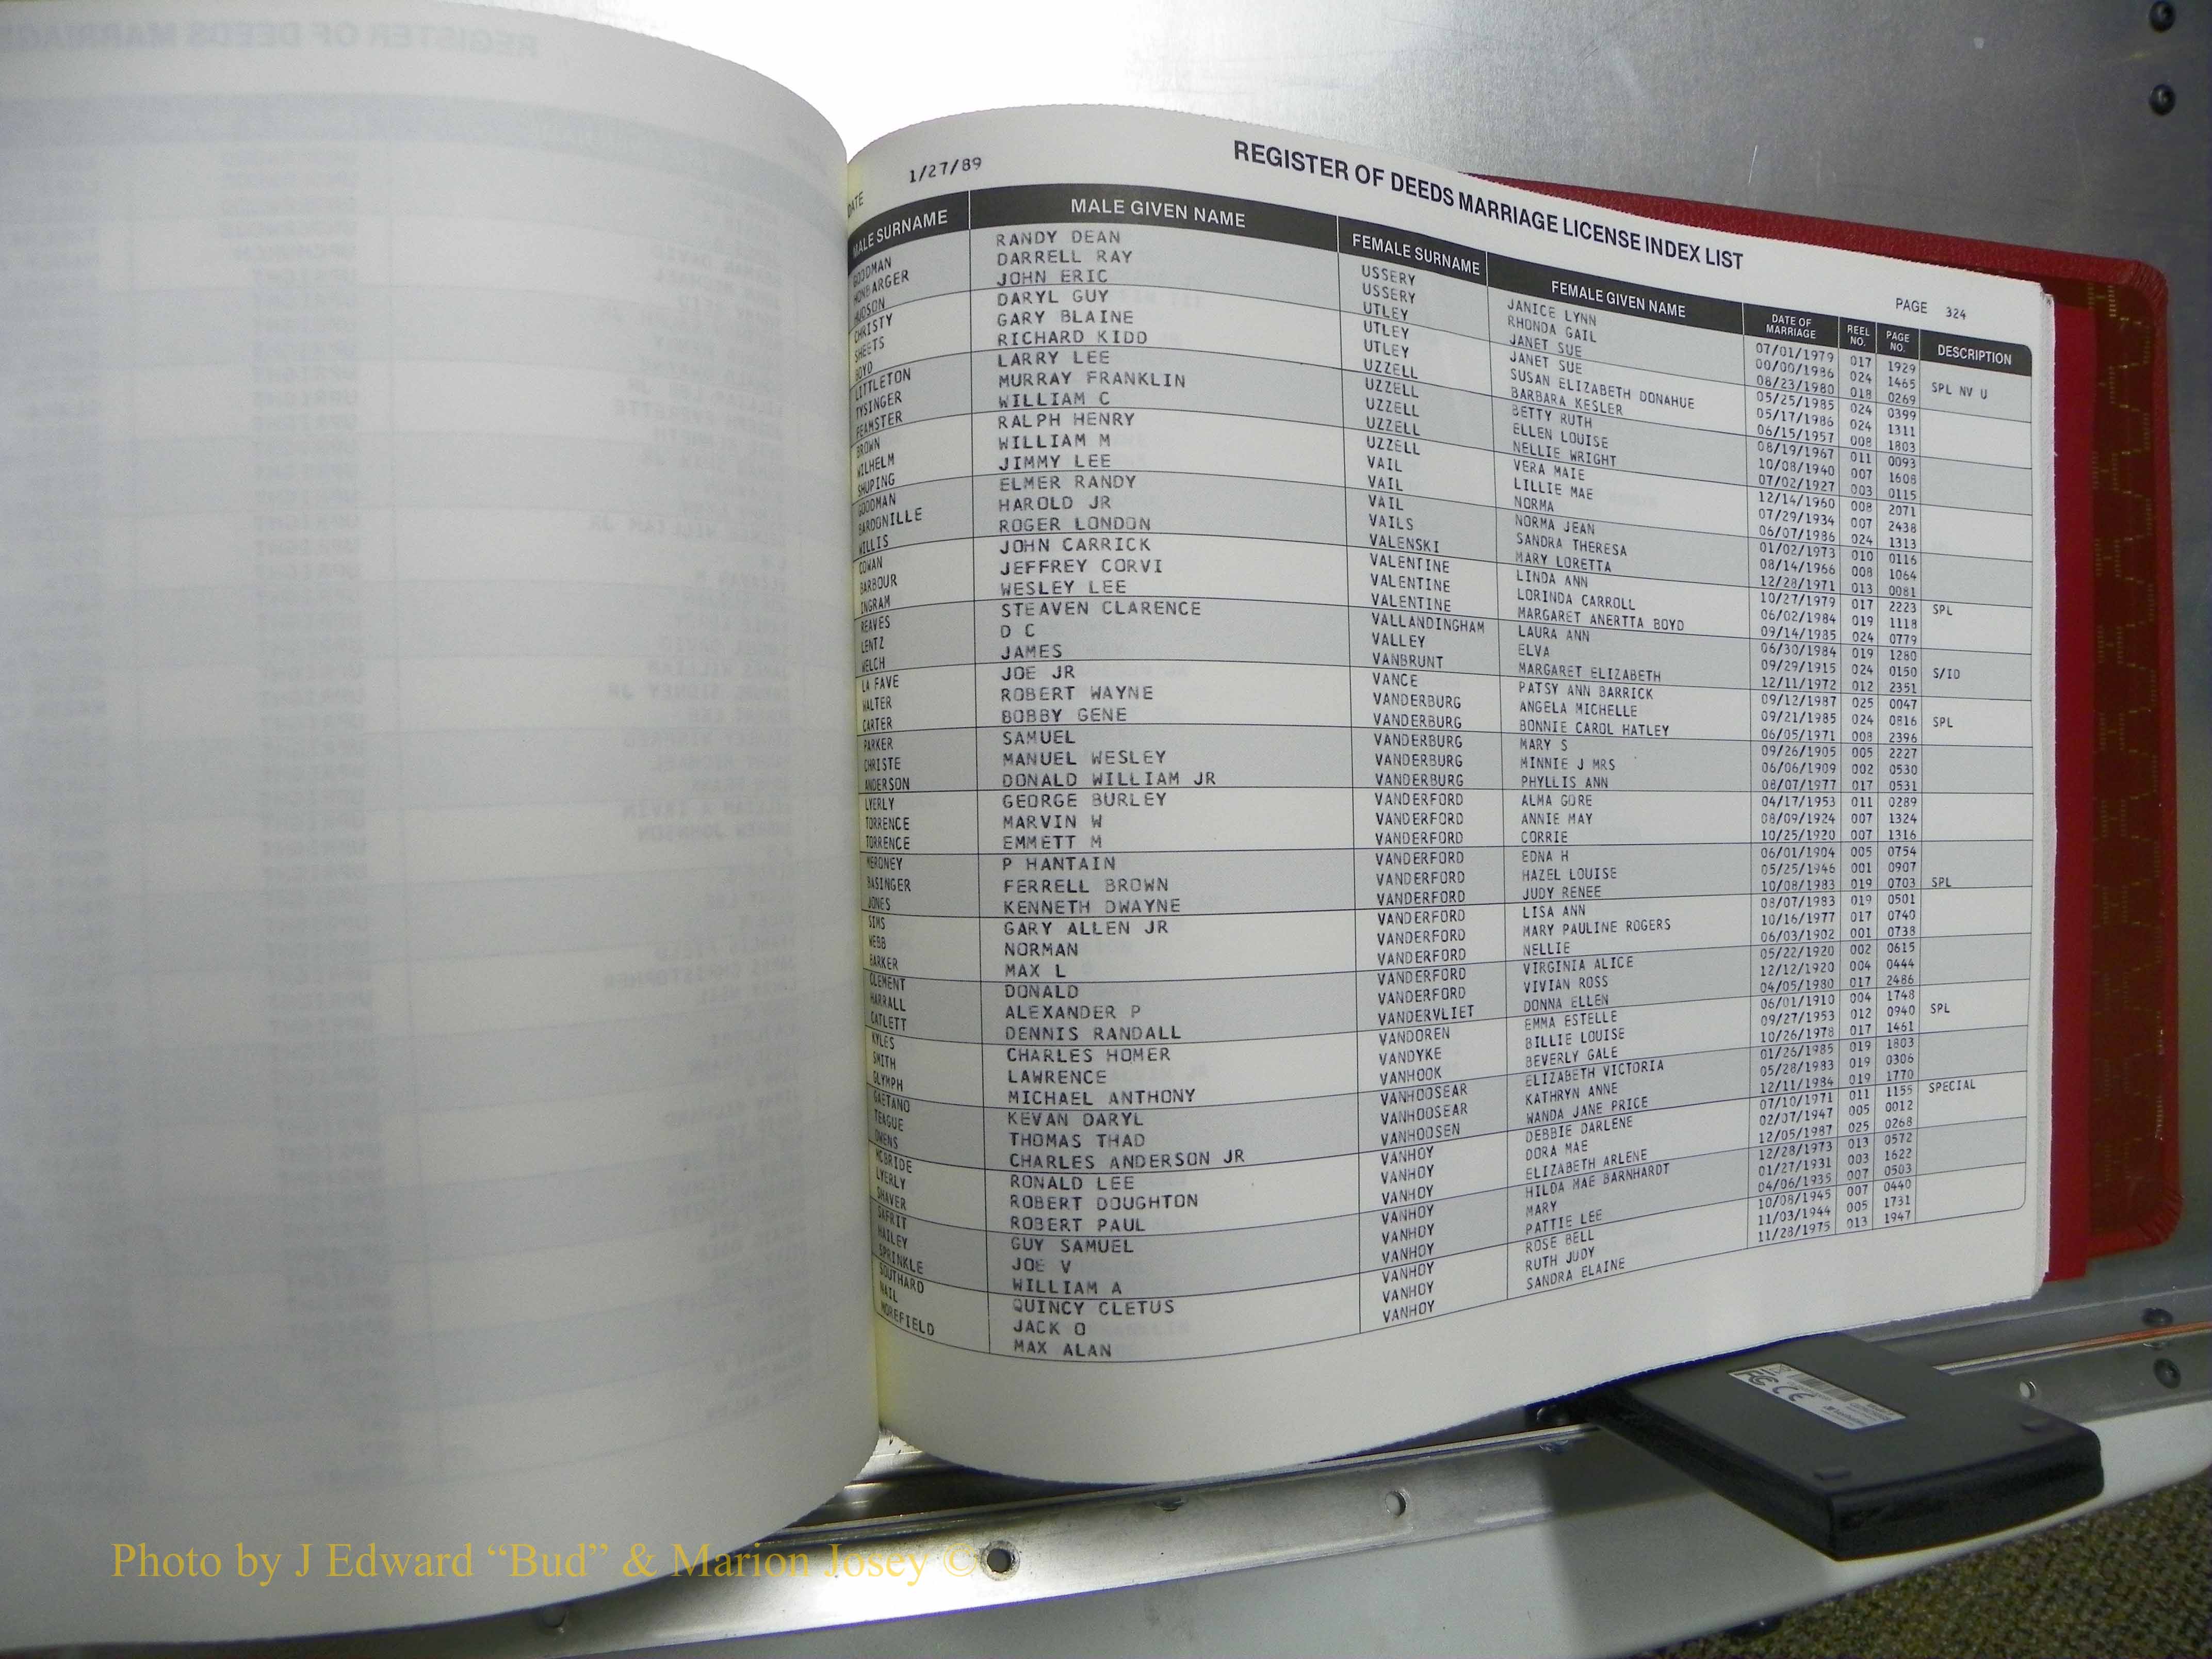 DATE 1/27/89 REGISTER OF DEEDS MARRIAGE LICENSE INDEX LIST PAGE 324
MALE SURNAME MALE GIVEN NAME FEMALE SURNAME FEMALE GIVEN NAME DATE OF MARRIAGE REEL NO. PAGE NO. DESCRIPTION
GOODMAN RANDY DEAN USSERY JANICE LYNN 07/01/1979 017 1929
HONBARGER DARRELL RAY USSERY RHONDA GAIL 00/00/1986 024 1465 SPL NV U
HUDSON JOHN ERIC UTLEY JANET SUE 08/23/1980 018 0269
CHRISTY DARYL GUY UTLEY JANET SUE 05/25/1985 024 0399
SHEETS GARY BLAINE UTLEY SUSAN ELIZABETH DONAHUE 05/17/1986 024 1311
BOYD RICHARD KIDD UZZELL BARBARA KESLER 06/15/1957 008 1803
LITTLETON LARRY LEE UZZELL BETTY RUTH 08/19/1967 011 0093
TYSINGER MURRAY FRANKLIN UZZELL ELLEN LOUISE 10/08/1940 007 1608
FEAMSTER WILLIAM C UZZELL NELLIE WRIGHT 07/02/1927 003 0115
BROWN RALPH HENRY UZZELL VERA MAIE 12/14/1960 008 2071
WILHELM WILLIAM M VAIL LILLIE MAE 07/29/1934 007 2438
SHUPING JIMMY LEE VAIL NORMA 06/07/1986 024 1313
GOODMAN ELMER RANDY VAIL NORMA JEAN 01/02/1973 010 0116
BARDONILLE HAROLD JR VAILS SANDRA THERESA 08/14/1966 008 1064
WILLIS ROGER LONDON VALENSKI MARY LORETTA 12/28/1971 013 0081
COWAN JOHN CARRICK VALENTINE LINDA ANN 10/27/1979 017 2223 SPL
BARBOUR JEFFREY CORVI VALENTINE LORINDA CARROLL 06/02/1984 019 1118
INGRAM WESLEY LEE VALENTINE MARGARET ANERTTA BOYD 09/14/1985 024 0779
REAVES STEAVEN CLARENCE VALLANDINGHAM LAURA ANN 06/30/1984 019 1280
LENTZ D C VALLEY ELVA 09/29/1915 024 0150 S/ID
WELCH JAMES VANBRUNT MARGARET ELIZABETH 12/11/1972 012 2351
LA FAVE JOE JR VANCE PATSY ANN BARRICK 09/12/1987 025 0047
WALTER ROBERT WAYNE VANDERBURG ANGELA MICHELLE 09/21/1985 024 0816 SPL
CARTER BOBBY GENE VANDERBURG BONNIE CAROL HATLEY 06/05/1971 008 2396
PARKER SAMUEL VANDERBURG MARY S 09/26/1905 005 2227
CHRISTE MANUEL WESLEY VANDERBURG MINNIE J MRS 06/06/1909 002 0530
ANDERSON DONALD WILLIAM JR VANDERBURG PHYLLIS ANN 08/07/1977 017 0531
LYERLY GEORGE BURLEY VANDERFORD ALMA GORE 04/17/1953 011 0289
TORRENCE MARVIN W VANDERFORD ANNIE MAY 08/09/1924 007 1324
TORRENCE EMMETT M VANDERFORD CORRIE 10/25/1920 007 1316
MERONEY P HANTAIN VANDERFORD EDNA H 06/01/1904 005 0754
BASINGER FERRELL BROWN VANDERFORD HAZEL LOUISE 05/25/1946 001 0907
JONES KENNETH DWAYNE VANDERFORD JUDY RENEE 10/08/1983 019 0703 SPL
SIMS GARY ALLEN JR VANDERFORD LISA ANN 08/07/1983 019 0501
WEBB NORMAN VANDERFORD MARY PAULINE ROGERS 10/16/1977 017 0740
BARKER MAX L VANDERFORD NELLIE 06/03/1902 001 0738
CLEMENT DONALD VANDERFORD VIRGINIA ALICE 05/22/1920 002 0615
HARRALL ALEXANDER P VANDERFORD VIVIAN ROSS 12/12/1920 004 0444
CATLETT DENNIS RANDALL VANDERVLIET DONNA ELLEN 04/05/1980 017 2486
KYLES CHARLES HOMER VANDOREN EMMA ESTELLE 06/01/1910 004 1748
SMITH LAWRENCE VANDYKE BILLIE LOUISE 09/27/1953 012 0940 SPL
GLYMPH MICHAEL ANTHONY VANHOOK BEVERLY GALE 10/26/1978 017 1461
GAETANO KEVAN DARYL VANHOOSEAR ELIZABETH VICTORIA 01/26/1985 019 1803
TEAGUE THOMAS THAD VANHOOSEAR KATHRYN ANNE 05/28/1983 019 0306
OWENS CHARLES ANDERSON JR VANHOOSEN WANDA JANE PRICE 12/11/1984 019 1770
MCBRIDE RONALD LEE VANHOY DEBBIE DARLENE 07/10/1971 011 1155 SPECIAL
LYERLY ROBERT DOUGHTON VANHOY DORA MAE 02/07/1947 005 0012
SHAVER ROBERT PAUL VANHOY ELIZABETH ARLENE 12/05/1987 025 0268
SAFRIT GUY SAMUEL VANHOY HILDA MAE BARNHARDT 12/28/1973 013 0572
HAILEY JOE V VANHOY MARY 01/27/1931 003 1622
SPRINKLE WILLIAM A VANHOY PATTIE LEE 04/06/1935 007 0503
SOUTHARD QUINCY CLETUS VANHOY ROSE BELL 10/08/1945 007 0440
NAIL JACK O VANHOY RUTH JUDY 11/03/1944 005 1731
MOREFIELD MAX ALAN VANHOY SANDRA ELAINE 11/28/1975 013 1947
Photo by J Edward “Bud” & Marion Josey ©